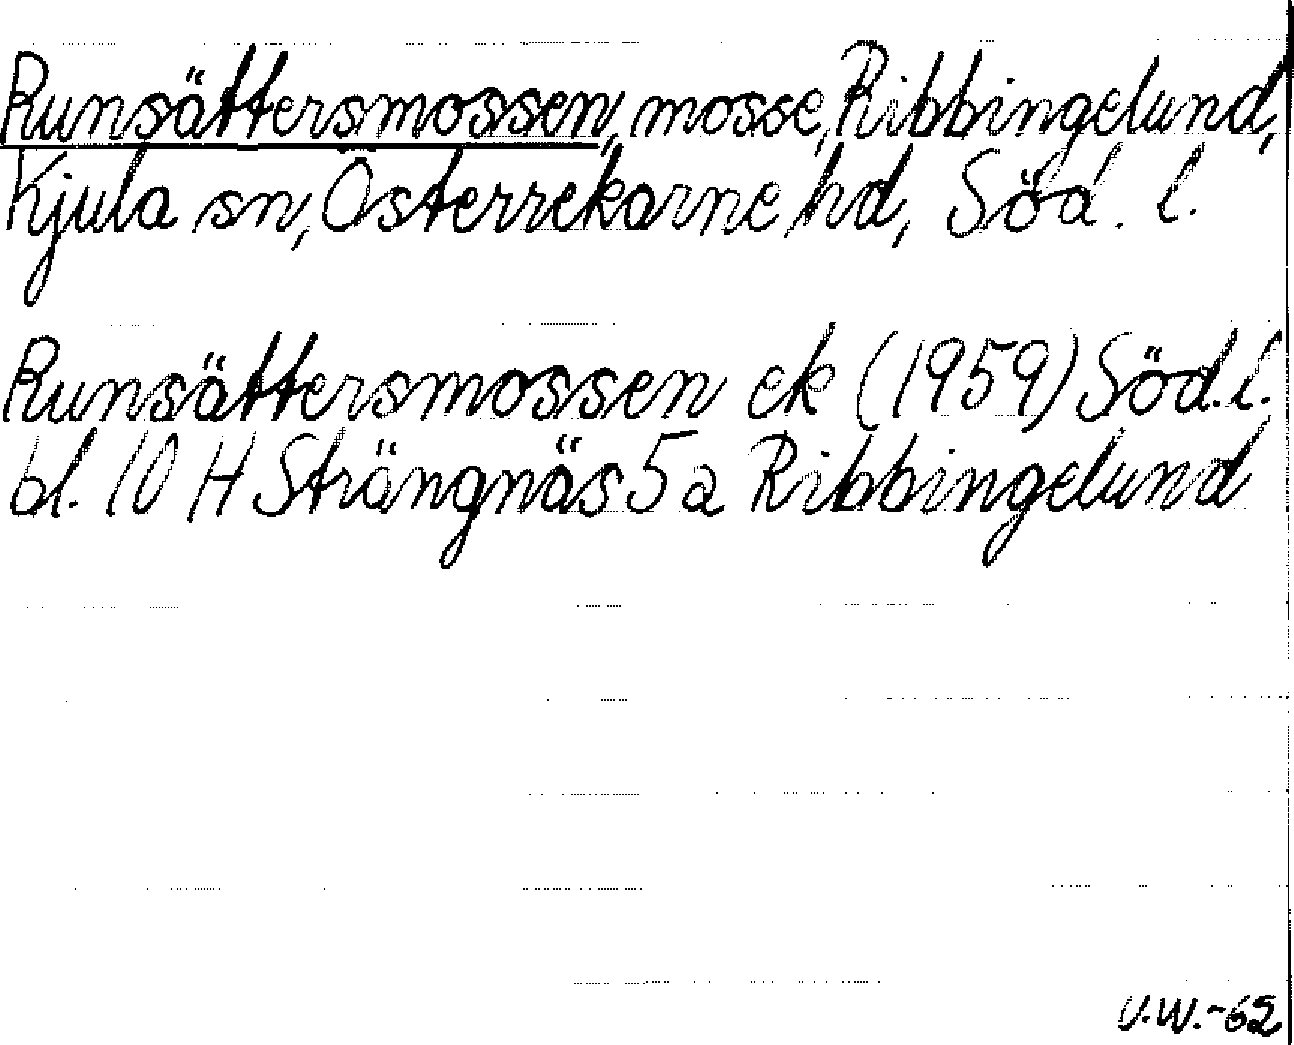 Runsättersmossen, mosse, Ribbingelund,
Kjula sn, Österrekarne hd, Söd. l.
Runsättersmossen ek (1959) Söd. l.
bl. 10 H Strängnäs 5 a Ribbingelund
V.W.-62